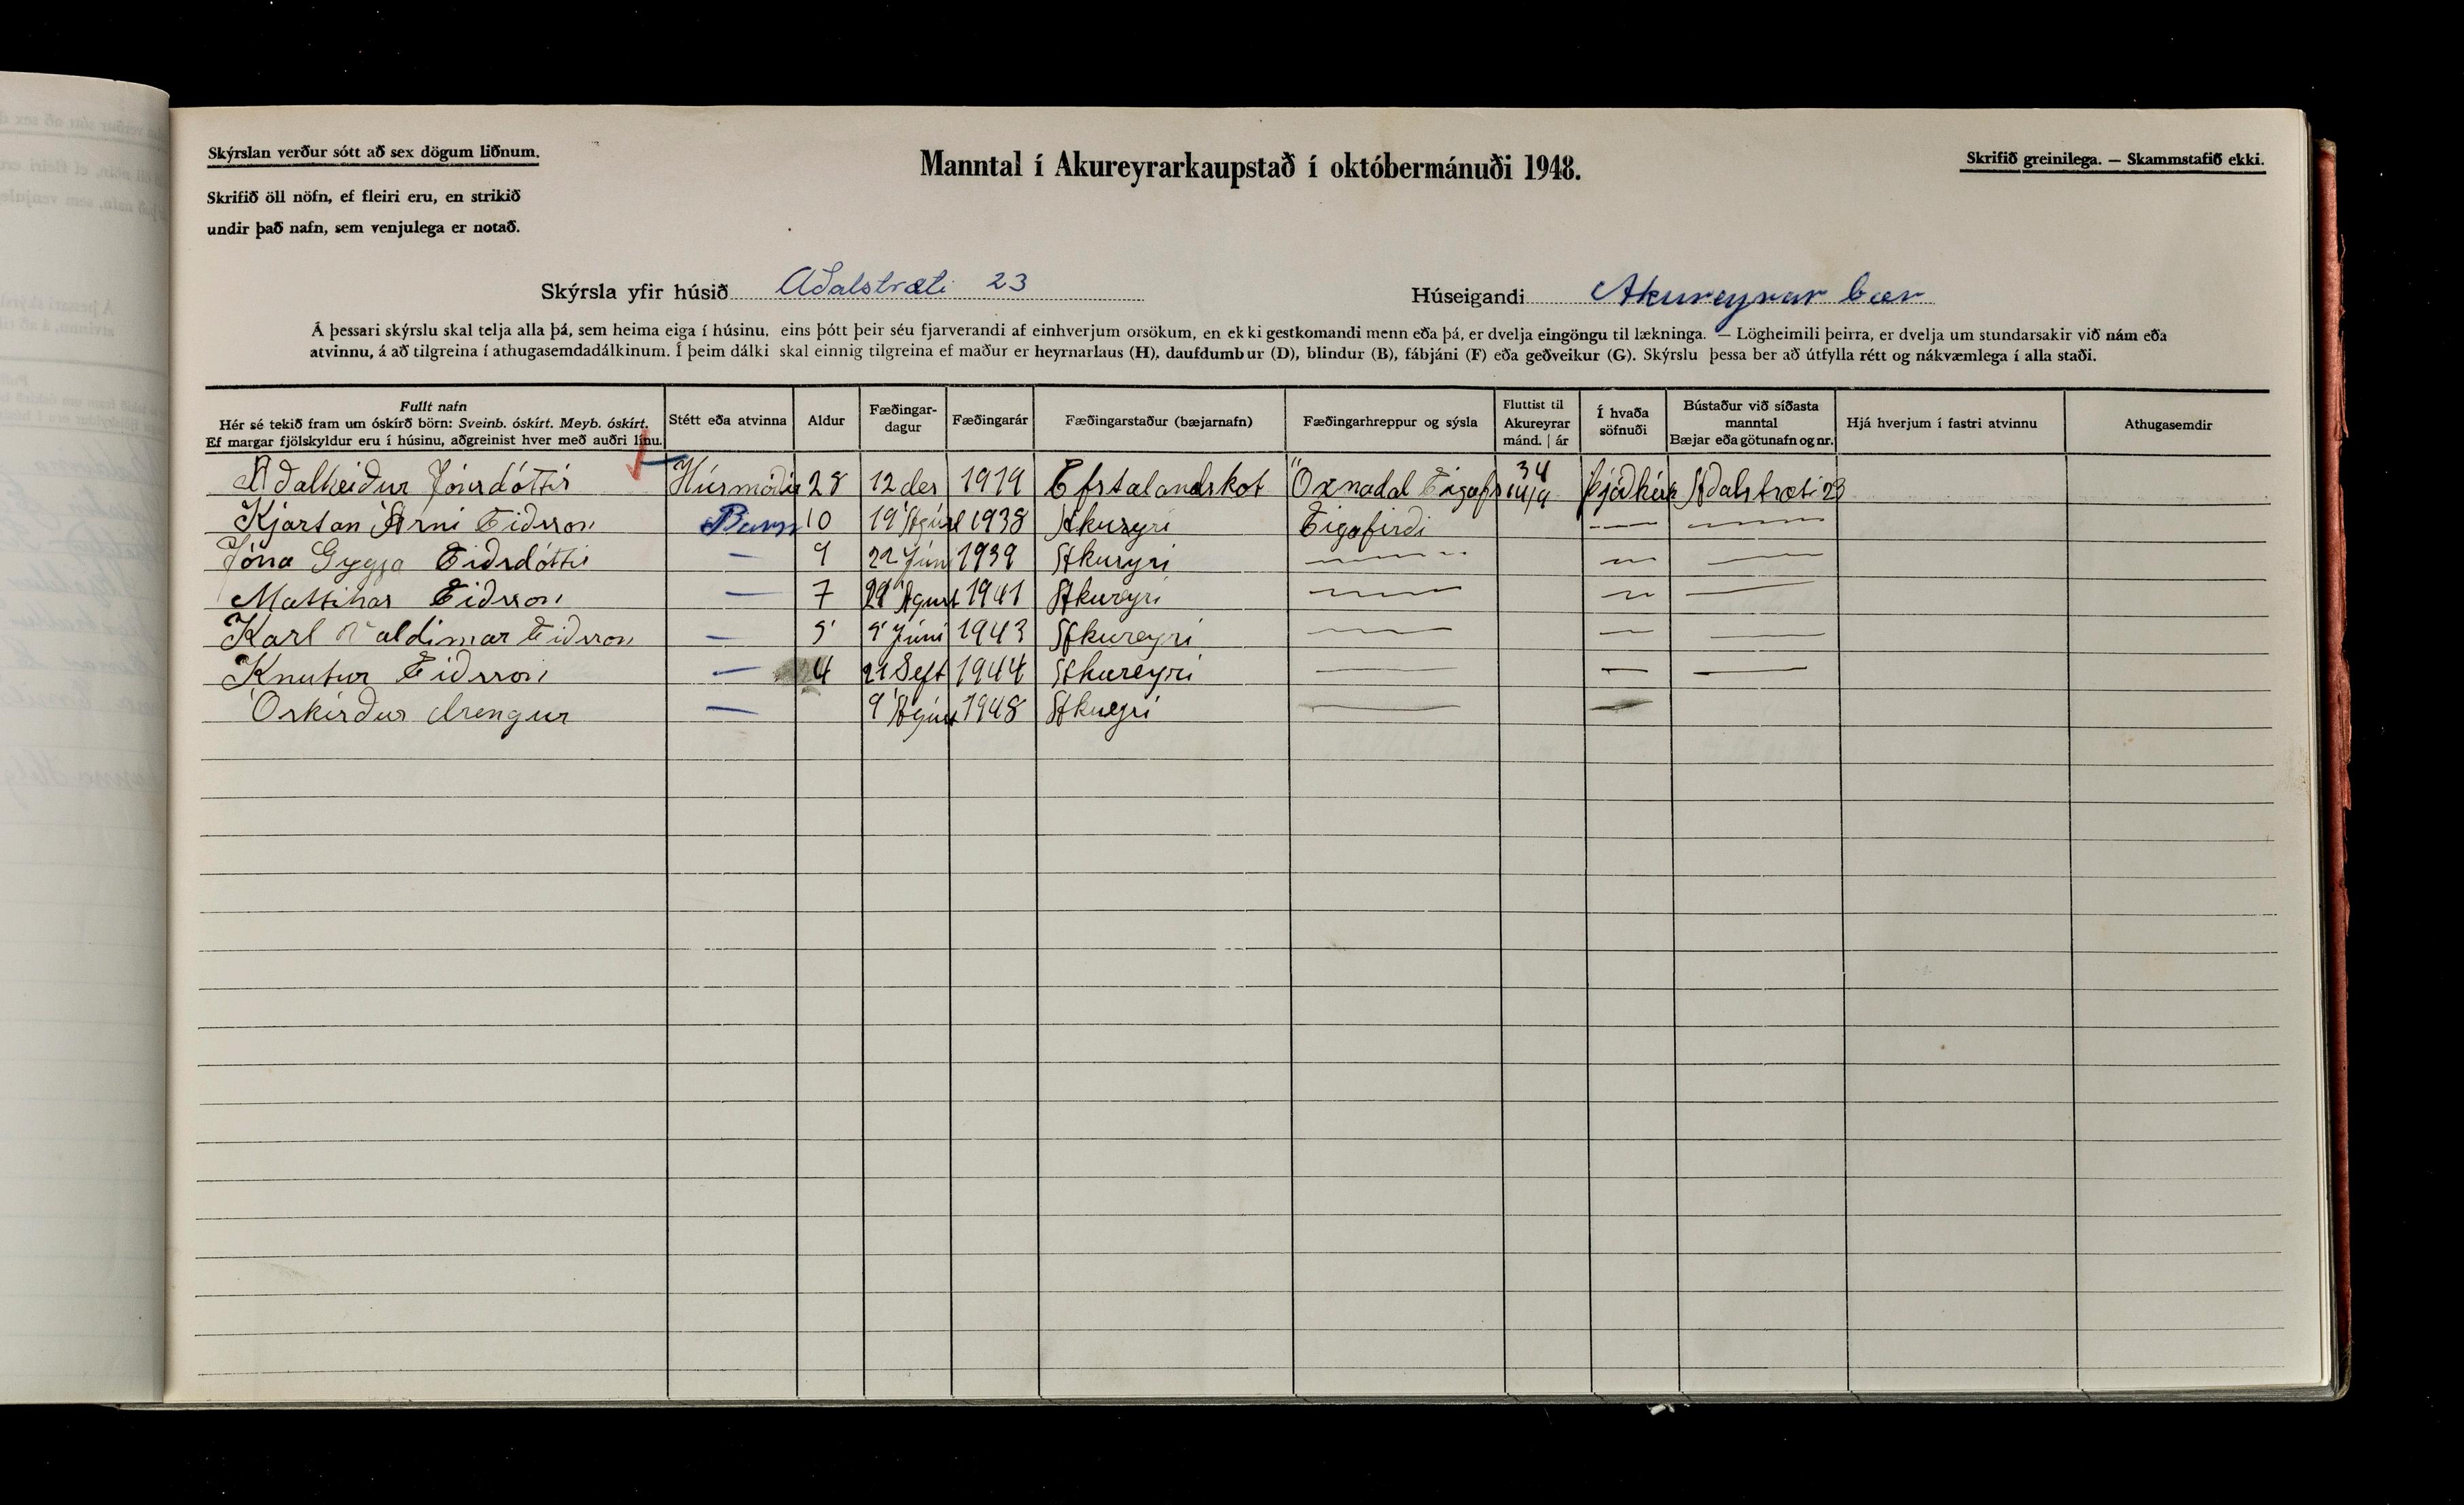 Skýrslan verður sótt að sex dögum liðnum.
Manntal í Akureyrarkaupstað í októbermánuði 1948.
Skrifið greinilega. — Skammstafið ekki.
Skrifið öll nöfn, ef fleiri eru, en strikið
undir það nafn, sem venjulega er notað.
Skýrsla yfir húsið Aðalstræti 23 Húseigandi Akureyrar bær
Á þessari skýrslu skal telja alla þá, sem heima eiga í húsinu, eins þótt þeir séu fjarverandi af einhverjum orsökum, en ekki gestkomandi menn eða þá, er dvelja eingöngu til lækninga. — Lögheimili þeirra, er dvelja um stundarsakir við nám eða
atvinnu, á að tilgreina í athugasemdadálkinum. Í þeim dálki skal einnig tilgreina ef maður er heyrnarlaus (H), daufdumbur (D), blindur (B), fábjáni (F) eða geðveikur (G). Skýrslu þessa ber að útfylla rétt og nákvæmlega í alla staði.
Fullt nafn
Hér sé tekið fram um óskírð börn: Sveinb. óskírt. Meyb. óskírt.
Ef margar fjölskyldur eru í húsinu, aðgreinist hver með auðri línu.
Stétt eða atvinna
Aldur
Fæðingar-
dagur
Fæðingarár
Fæðingarstaður (bæjarnafn)
Fæðingarhreppur og sýsla
Fluttist til
Akureyrar
mánd. | ár
Í hvaða
söfnuði
Bústaður við síðasta
manntal
Bæjar eða götunafn og nr.
Hjá hverjum í fastri atvinnu
Athugasemdir
Aðalheiður Jónsdóttir Húsmóðir 28 12 des 1919 Efstalandskot Öxnadal 34 Aðalstræti 23
Kjartan Árni Eiðsson Barn 10 19 Águst 1938 Akureyri Eigafirði — —
Jóna Gygja Eiðsdóttir — 9 22 Júni 1939 Akuryri — — —
Mattihas Eiðsson — 7 Águst 1941 Akureyri — — —
Karl Valdimar Eiðsson — 5 5 Júni 1943 Akureyri — — —
Knutur Eiðsson — 4 21 Sept 1944 Akureyri — — —
Óskírður drengur — 9 Águst 1948 Akueyri — —